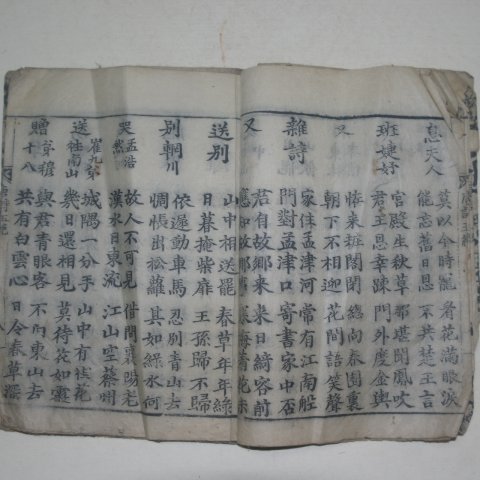 息夫人
莫以今時寵 能忘舊日恩
看花滿眼淚 不共楚王言
班婕妤
宮殿生秋草 君王恩幸疎
那堪聞鳳吹 門外度金輿
又
怪來粧閣閉 朝下不相迎
總向春園裏 花間語笑聲
雜詩
家住孟津河 門對孟津口
常有江南船 寄書家中否
又
君自故鄉來 應知故鄉
來日綺窓前
送別
山中相送罷 日暮掩柴扉
春草年年綠 王孫歸不歸
別輞川
依遲動車馬 惆悵出松蘿
忍別青山去 其如綠水何
哭孟浩然
故人不可見 漢水日東流
借問襄陽老 江山空蔡州
送崔九弟往南山
城隅一分手 幾日還相見
山中有桂花 莫待花如霰
贈韋穆十八
與君青眼客 共有白雲心
不向東山去 日令春草深